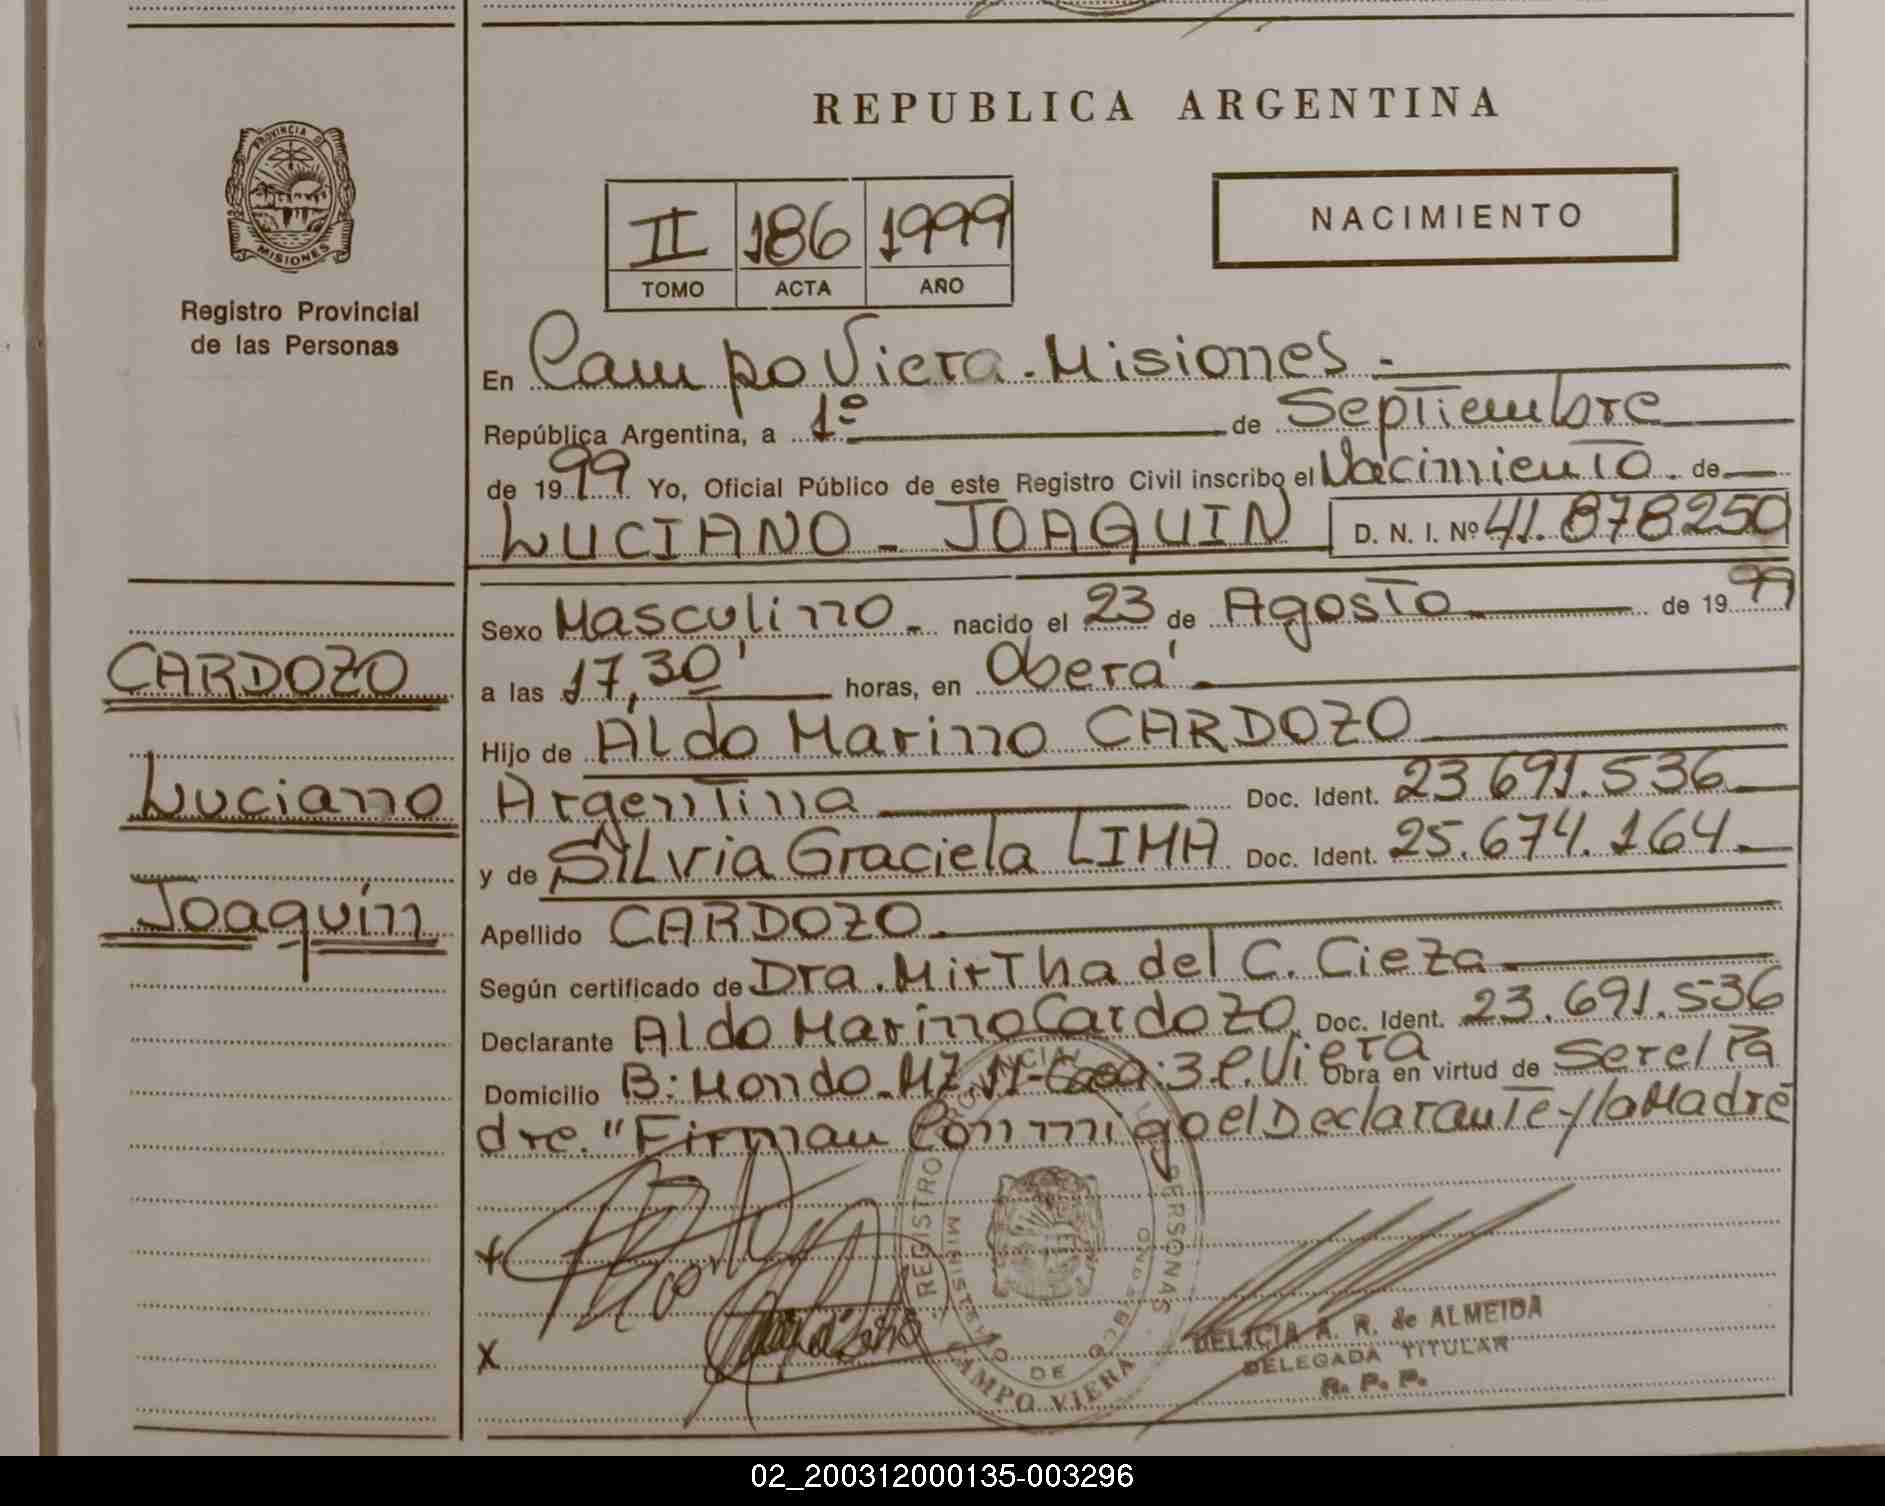 REPUBLICA ARGENTINA
PROVINCIA D
MISIONES
Registro Provincial
de las Personas
II 186 1999
TOMO ACTA AÑO
NACIMIENTO
En Campo Viera - Misiones -
República Argentina, a 1º de Septiembre
de 1999 Yo, Oficial Público de este Registro Civil inscribo el Nacimiento de
LUCIANO - JOAQUIN D. N. I. Nº 41.878250
Sexo Masculino - nacido el 23 de Agosto de 1999
a las 17,30' horas, en Oberá
Hijo de Aldo Marino CARDOZO
Argentina Doc. Ident. 23 691.536
y de Silvia Graciela LIMA Doc. Ident. 25.674.164
Apellido CARDOZO
Según certificado de Dra. Mirtha del C. Cieza
Declarante Aldo Marino Cardozo Doc. Ident. 23.691.536
Domicilio B: Hondo - MZ. 11 - Casa: 3. C. Viera Obra en virtud de Ser el Pa
dre. "Firman Conmigo el Declarante y la Madre
CARDOZO
Luciano
Joaquín
X
X
REGISTRO PROVINCIAL PERSONAS
MINISTERIO DE GOBIERNO
CAMPO VIERA
DELICIA A. R. de ALMEIDA
DELEGADA TITULAR
R. P. P.
02_200312000135-003296